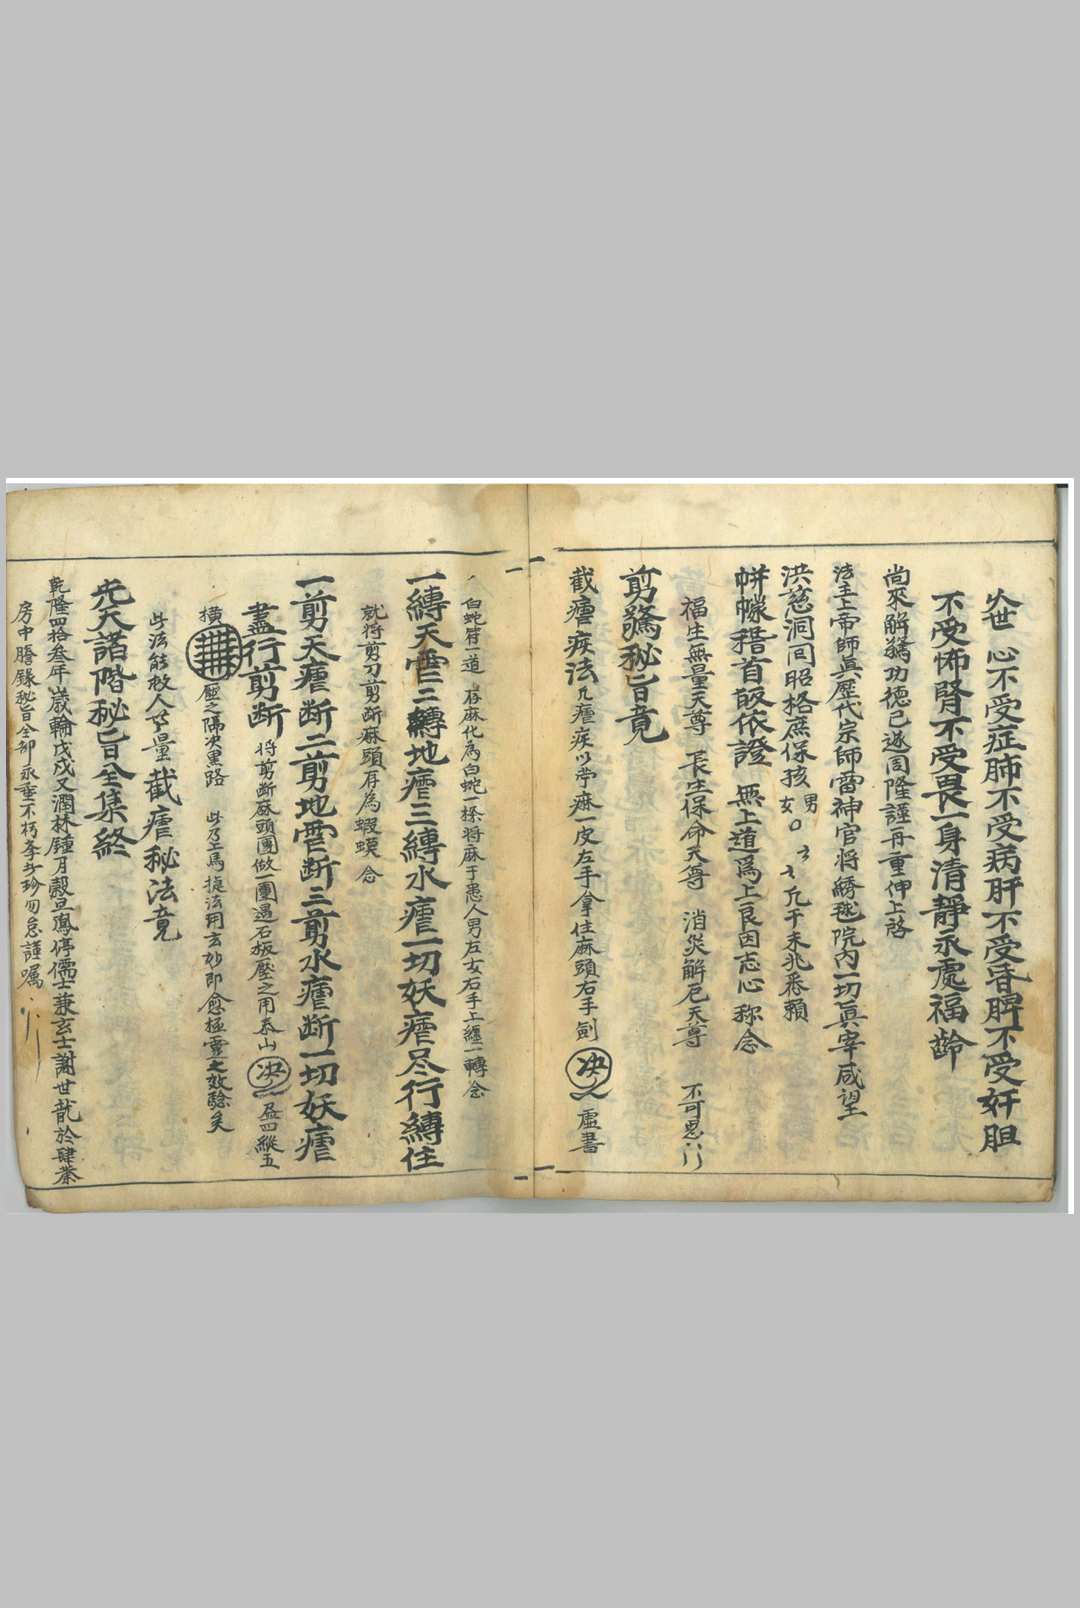 久世心不受症肺不受病肝不受昏脾不受奸胆
不受怖腎不受畏一身清靜永處福齡
尚來解驚功德已遂同隆謹再重伸上啓
法主上帝師真歷代宗師雷神官將綉毬院內一切真宰咸望
洪慈洞同昭格庶保孩男女〇 凡干未兆悉賴
帡幪稽首皈依證 無上道爲上良因志心称念
福生無量天尊 長生保命天尊 消災解厄天尊 不可思
剪驚秘旨竟
截瘧疾法凡瘧疾以苧蔴一皮左手拿住麻頭右手剣決虛書
白蛇符一道 存麻化為白蛇一條將麻于患人男左女右手上纏一轉念
一縛天瘧二縛地瘧三縛水瘧一切妖瘧尽行縛住
就將剪刀剪断蔴頭存為蝦蟆 念
一剪天瘧断二剪地瘧断三剪水瘧断一切妖瘧
盖行剪断 將剪断蔴頭團做一團過石板壓之用泰山決 及四縱五
橫 壓之隔决里路 此乃上馬捷法用玄妙即愈極灵之效驗矣
此法能救人無量 截瘧秘法竟
先天諸階秘旨全集終
乾隆四拾叁年歲輪戊戌又潤林鍾月穀旦鳳停儒士兼玄士謝世龍於肆業
房中謄錄秘旨全部永垂不朽孝步珍勿怠謹嘱